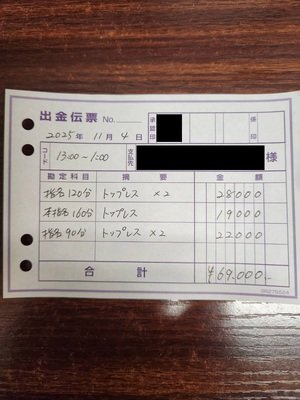 出金伝票 No.
承認印 係印
2025年 11月 4日
コード 13:00〜1:00 支払先 様
勘定科目 摘要 金額
指名120分 トップレス ×2 28000
本指名160分 トップレス 19000
指名90分 トップレス ×2 22000
合計 ¥69,000.-